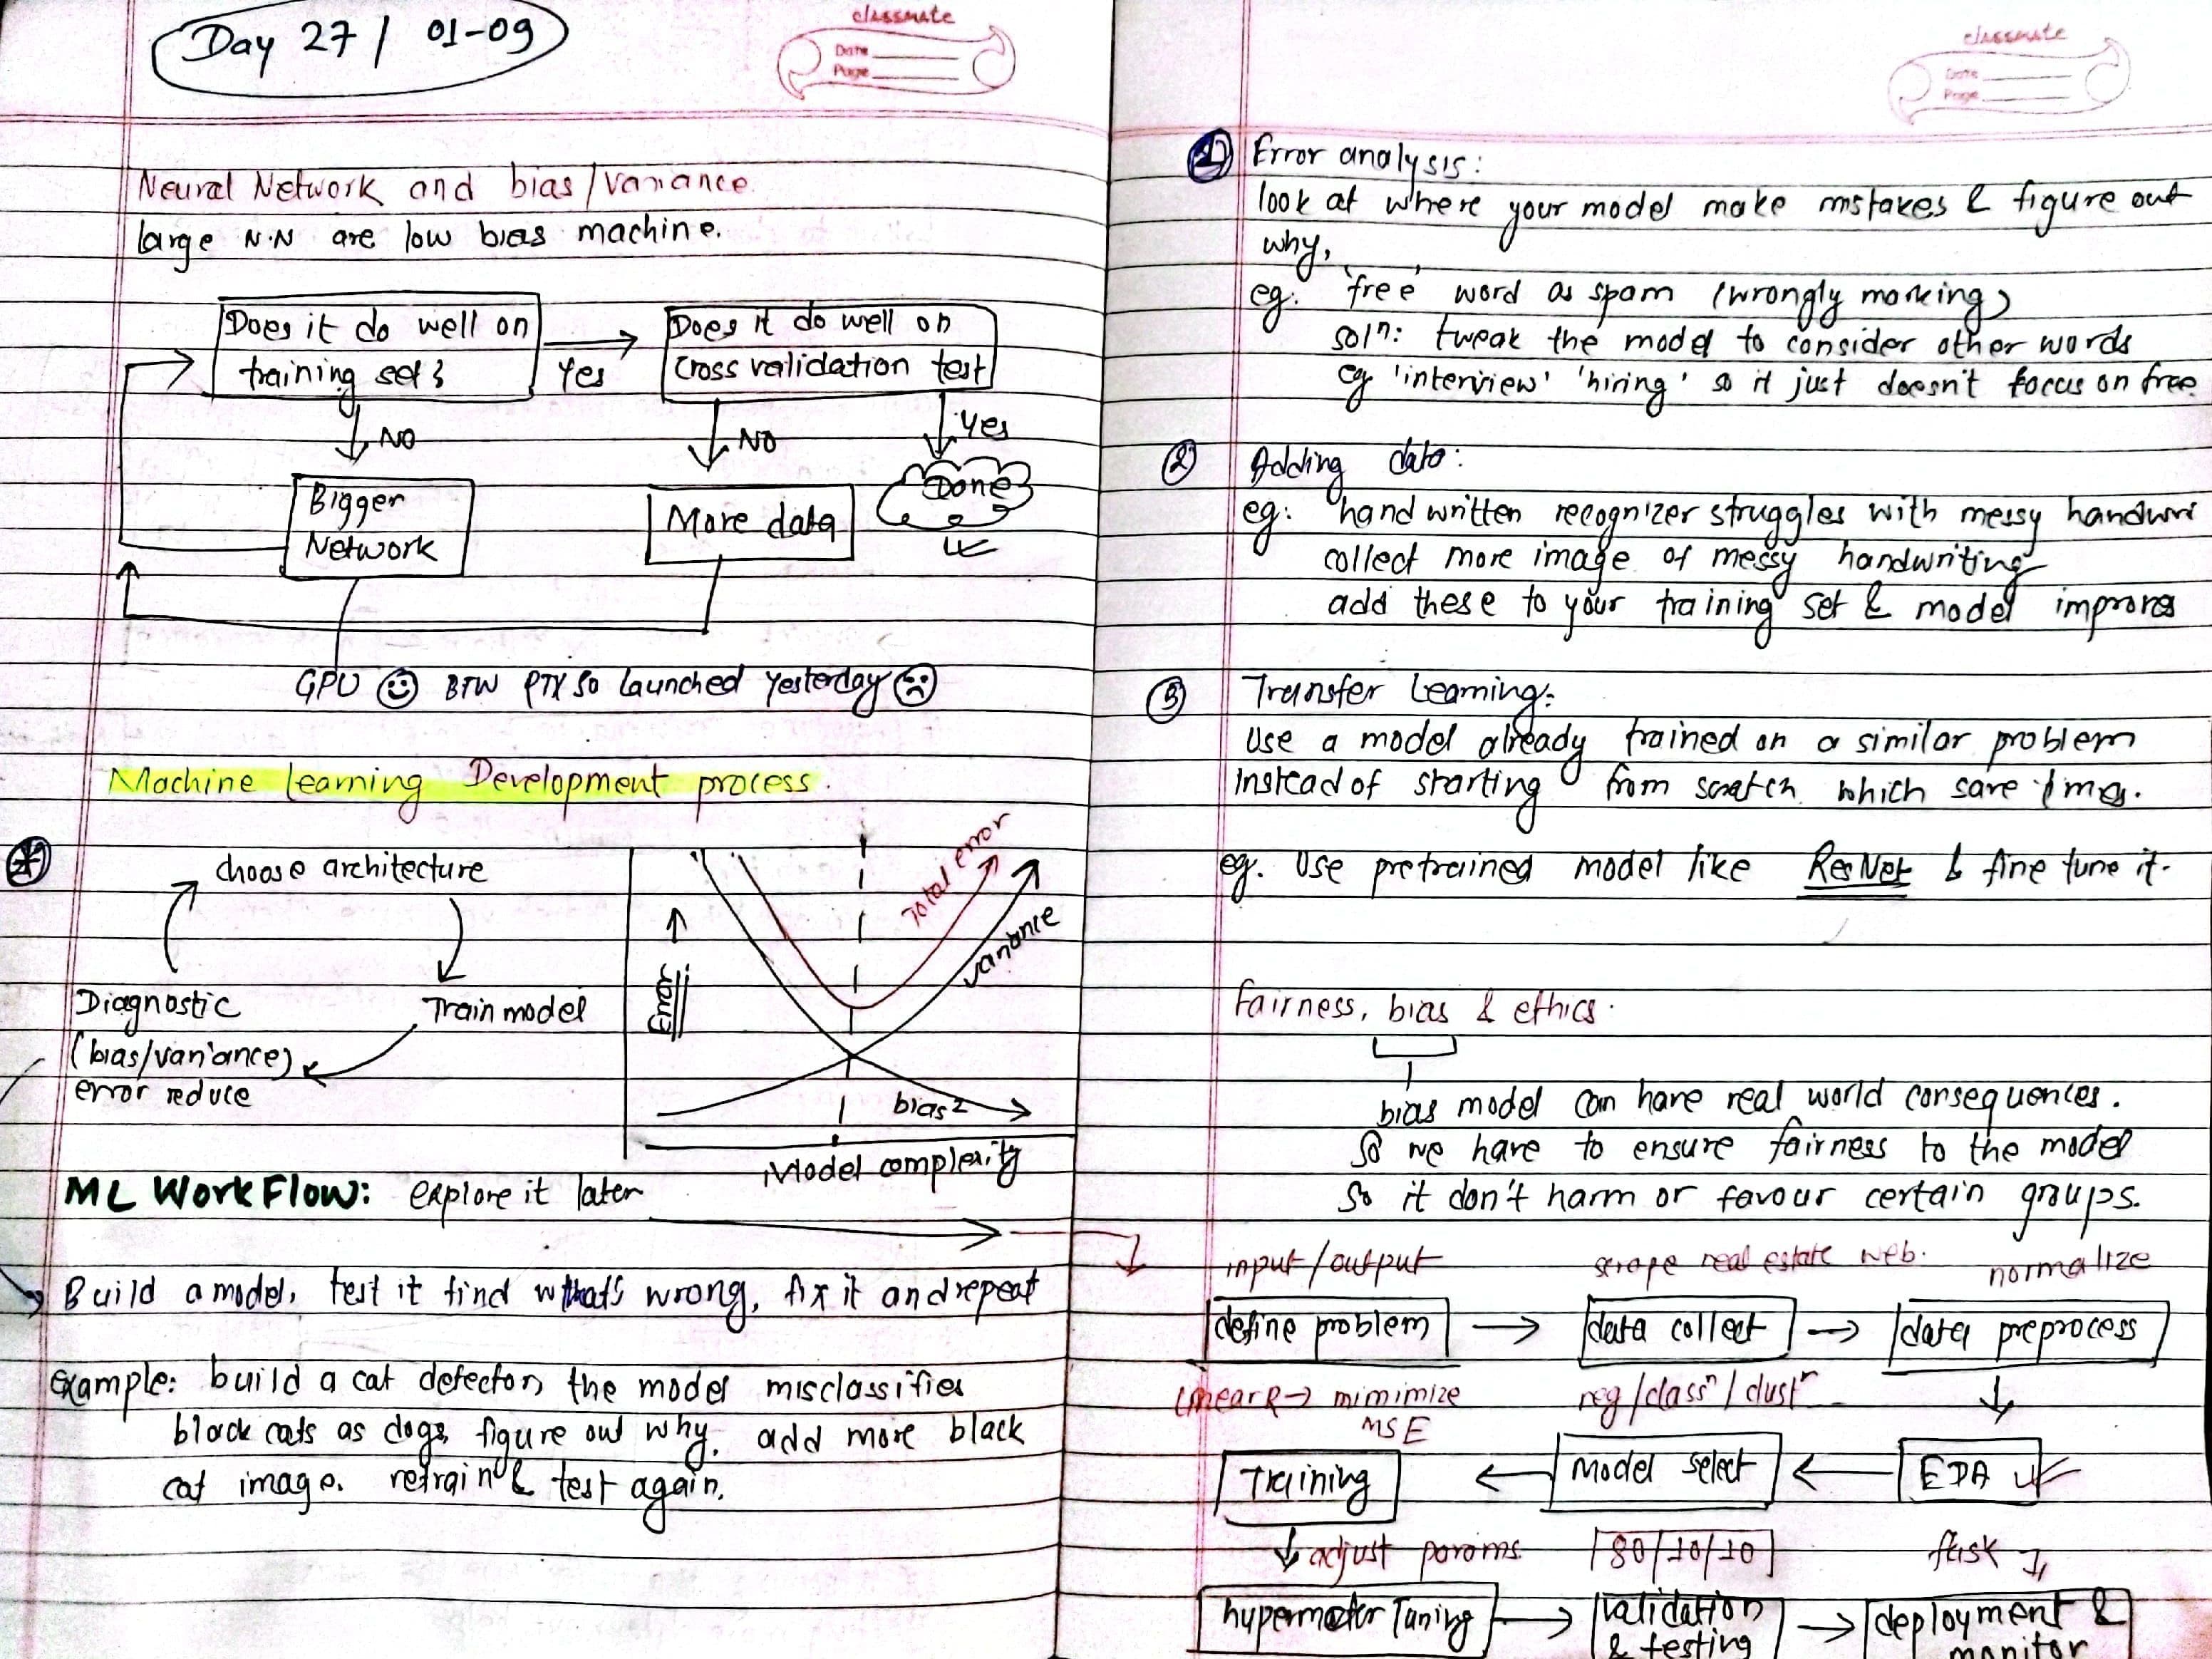 Day 27 / 01-09
classmate
Date
Page
Neural Network and bias/variance.
large N.N are low bias machine.
Does it do well on
training set?
Yes
Does it do well on
cross validation test
NO
NO
Yes
Bigger
Network
More data
Done
GPU BTW RTX 50 launched yesterday
Machine learning Development process.
choose architecture
Diagnostic
(bias/variance)
error reduce
Train model
Error
Total error
variance
bias2
Model complexity
ML WorkFlow: explore it later
Build a model, test it find what's wrong, fix it and repeat
Example: build a cat detector, the model misclassifies
black cats as dogs, figure out why. add more black
cat image. retrain & test again.
classmate
Date
Page
1 Error analysis:
look at where your model make mstakes & figure out
why,
eg: 'free' word as spam (wrongly marking)
solⁿ: tweak the model to consider other words
eg 'interview' 'hiring' so it just doesn't focus on free.
2 Adding data:
eg: hand written recognizer struggles with messy handwri
collect more image of messy handwriting
add these to your training set & model improves
3 Transfer Learning:
Use a model already trained on a similar problem
instead of starting from scratch which save times.
eg. Use pretrained model like ResNet & fine tune it.
Fairness, bias & ethics.
bias model can have real world consequences.
So we have to ensure fairness to the model
So it don't harm or favour certain groups.
input/output
scrape real estate web.
normalize
define problem
data collect
data preprocess
linear R → mimimize
MSE
reg/classⁿ/clustⁿ
Training
Model select
EDA
adjust params
80/10/10
flask
Tuning
validation
& testing
deployment &
monitor